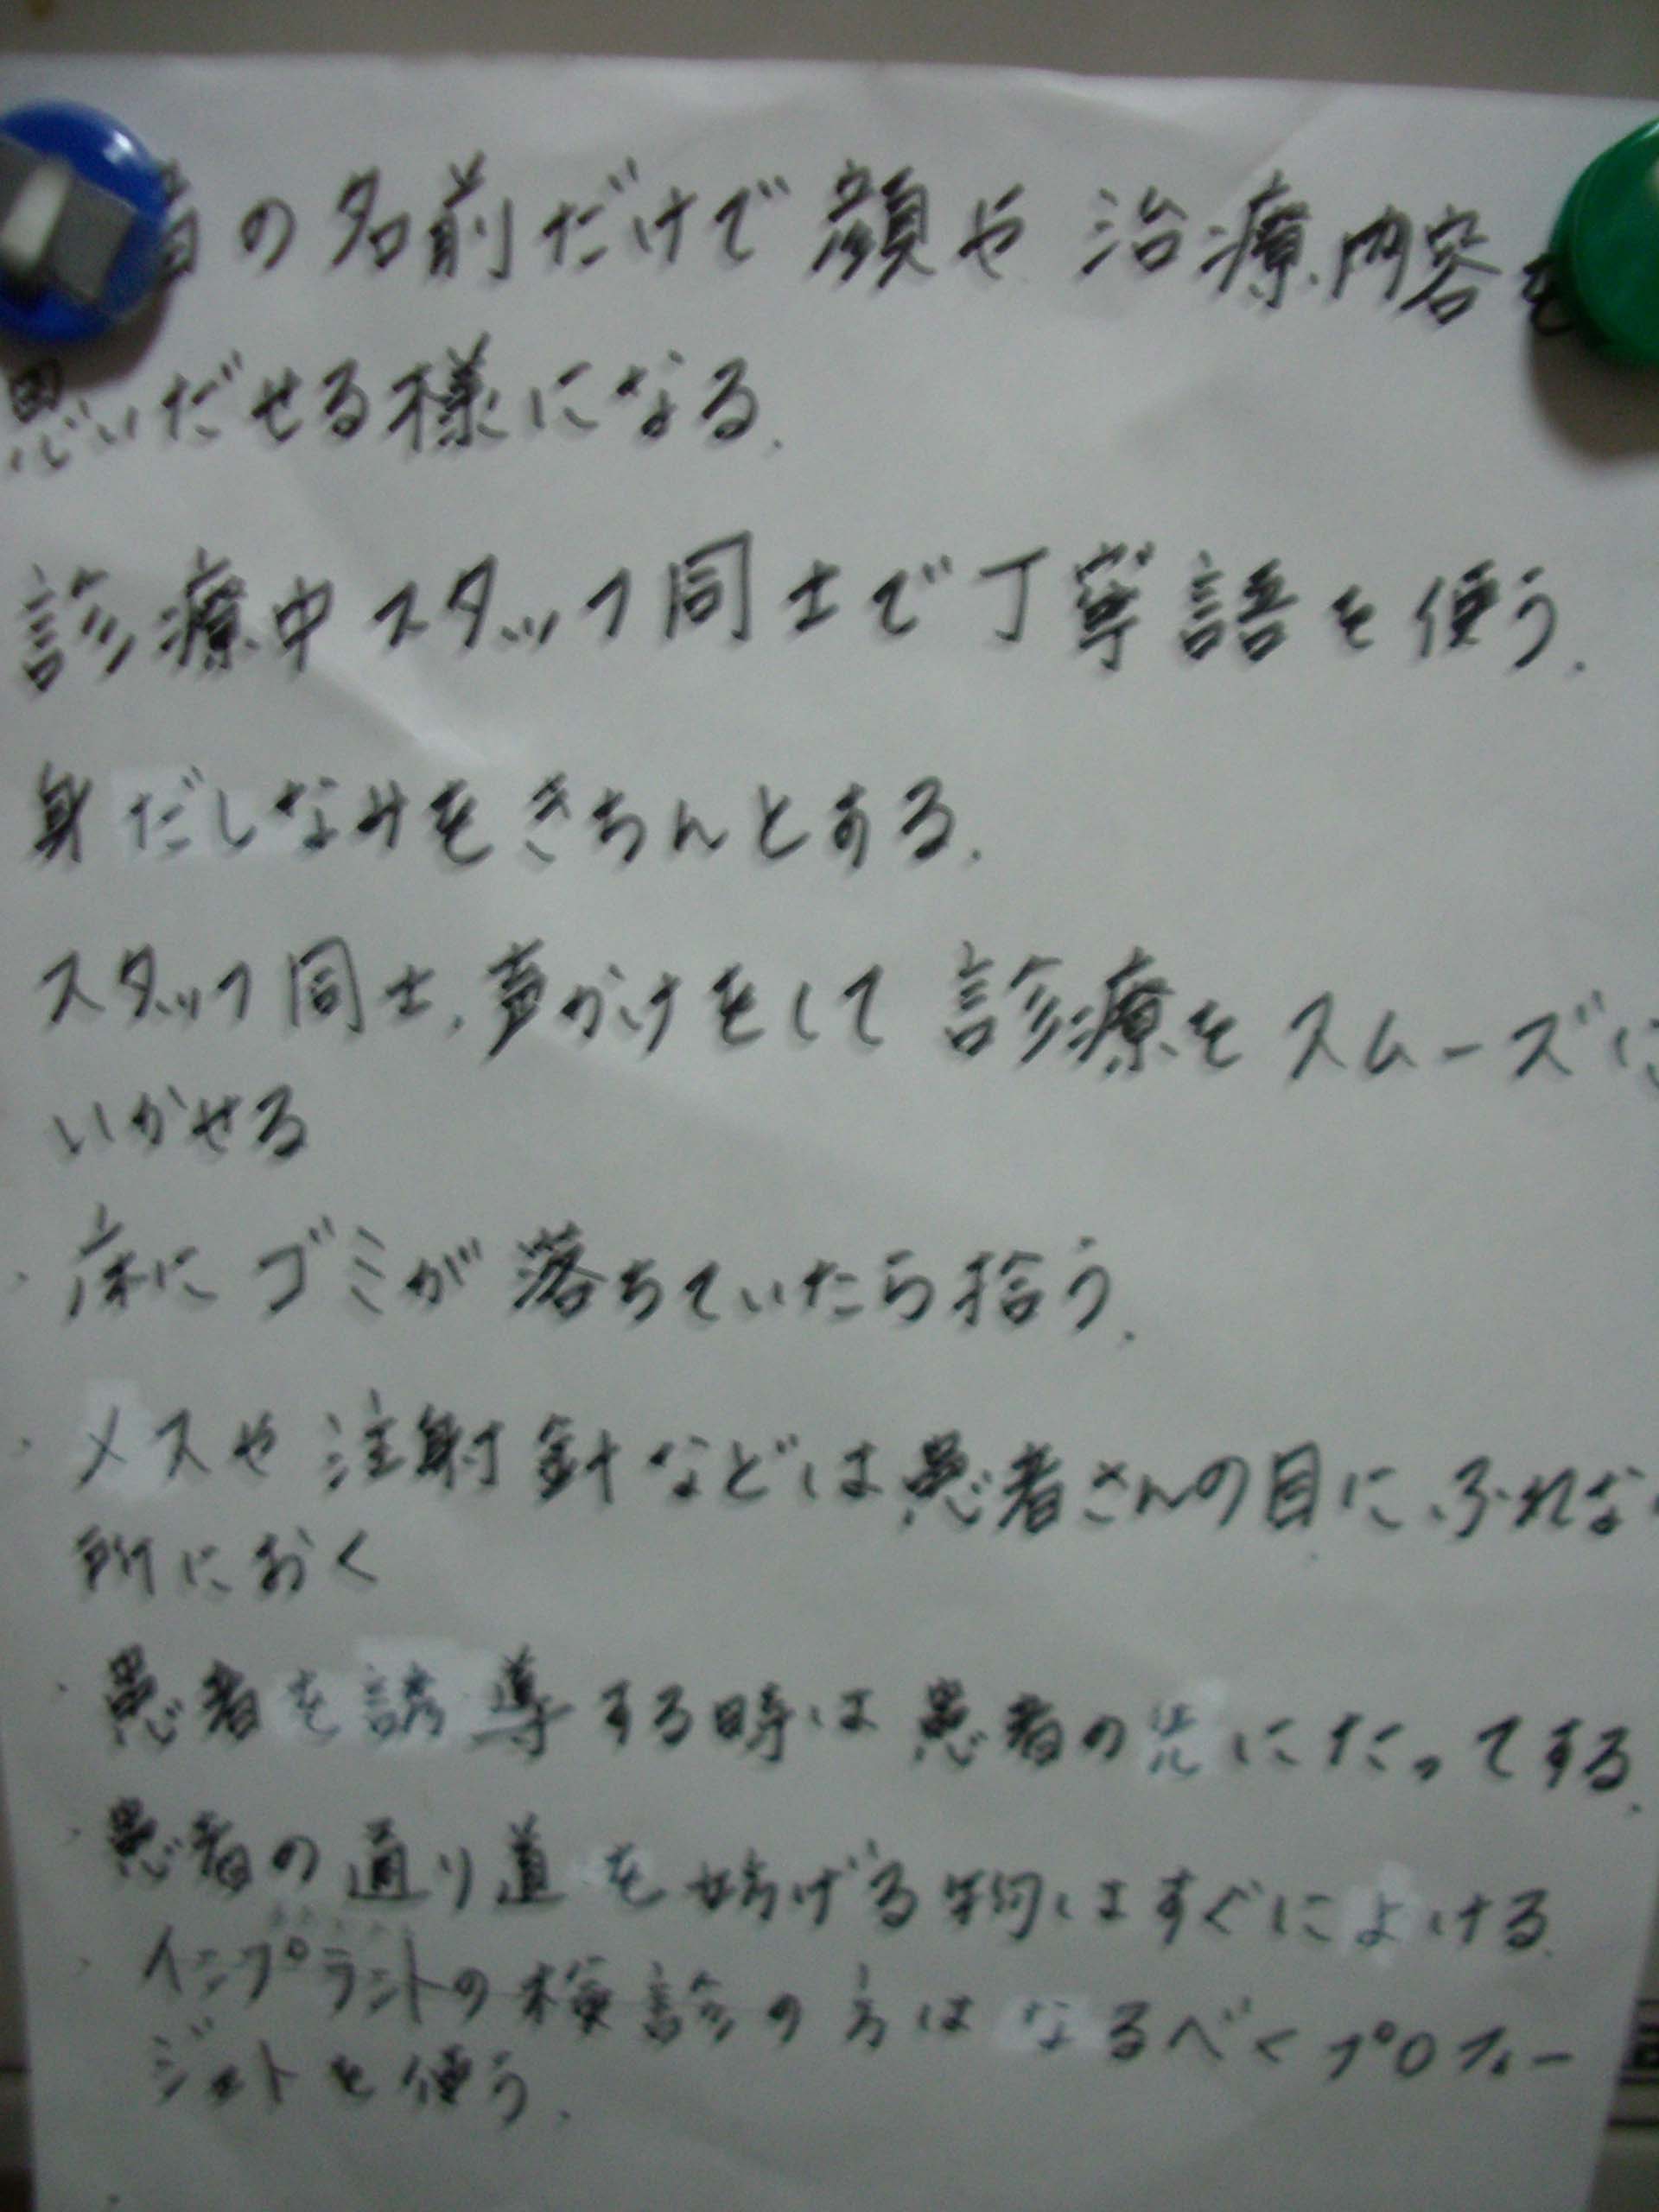 者の名前だけで顔や治療内容を
思いだせる様になる.
診療中スタッフ同士で丁寧語を使う.
身だしなみをきちんとする.
スタッフ同士,声かけをして診療をスムーズに
いかせる
・床にゴミが落ちていたら拾う.
・メスや注射針などは患者さんの目にふれな
所におく
・患者を誘導する時は患者の先にたってする.
・患者の通り道を妨げる物はすぐによける.
・インプラントの検診の方はなるべくプロフィー
ジェットを使う.